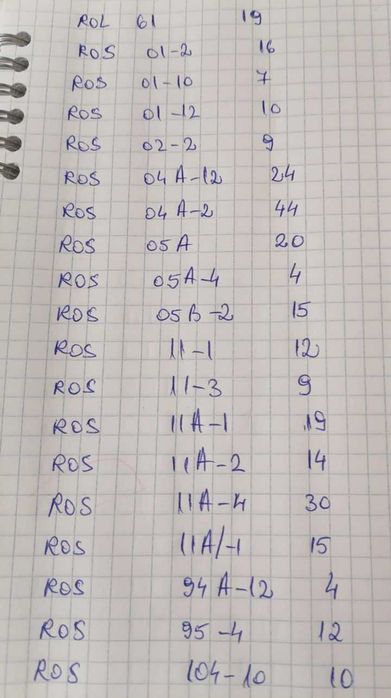 ROL 61 19
ROS 01-2 16
ROS 01-10 7
ROS 01-12 10
ROS 02-2 9
ROS 04A-12 24
ROS 04A-2 44
ROS 05A 20
ROS 05A-4 4
ROS 05B-2 15
ROS 11-1 12
ROS 11-3 9
ROS 11A-1 19
ROS 11A-2 14
ROS 11A-4 30
ROS 11A/-1 15
ROS 94A-12 4
ROS 95-4 12
ROS 104-10 10